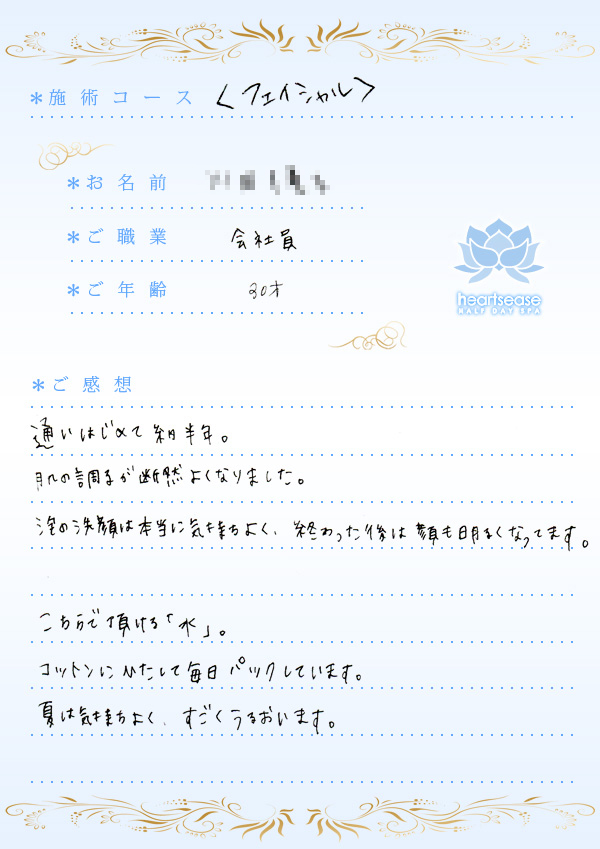 ＊施術コース 〈フェイシャル〉
＊お名前
＊ご職業 会社員
＊ご年齢 30才
heartsease
HALF DAY SPA
＊ご感想
通いはじめて約半年。
肌の調子が断然よくなりました。
泡の洗顔は本当に気持ちよく、終わった後は顔も明るくなってます。
こちらで頂ける「水」。
コットンにひたして毎日パックしています。
夏は気持ちよく、すごくうるおいます。